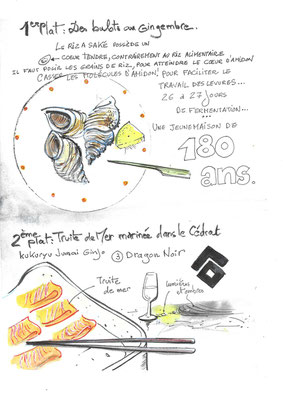 1er plat: Des bulots au Gingembre.
Le Riz à Saké possède un
cœur tendre, contrairement au riz alimentaire
Il faut polir les grains de riz, pour atteindre le cœur d'amidon
Casser les molécules d'amidon, pour faciliter le
travail des levures...
26 à 27 jours
de fermentation...
Une jeune maison de
180
ans.
2ème plat: Truite de Mer marinée dans le Cédrat
Kukuryu Junai Ginjo
3 Dragon Noir
Truite
de mer
Lumières
et ombres